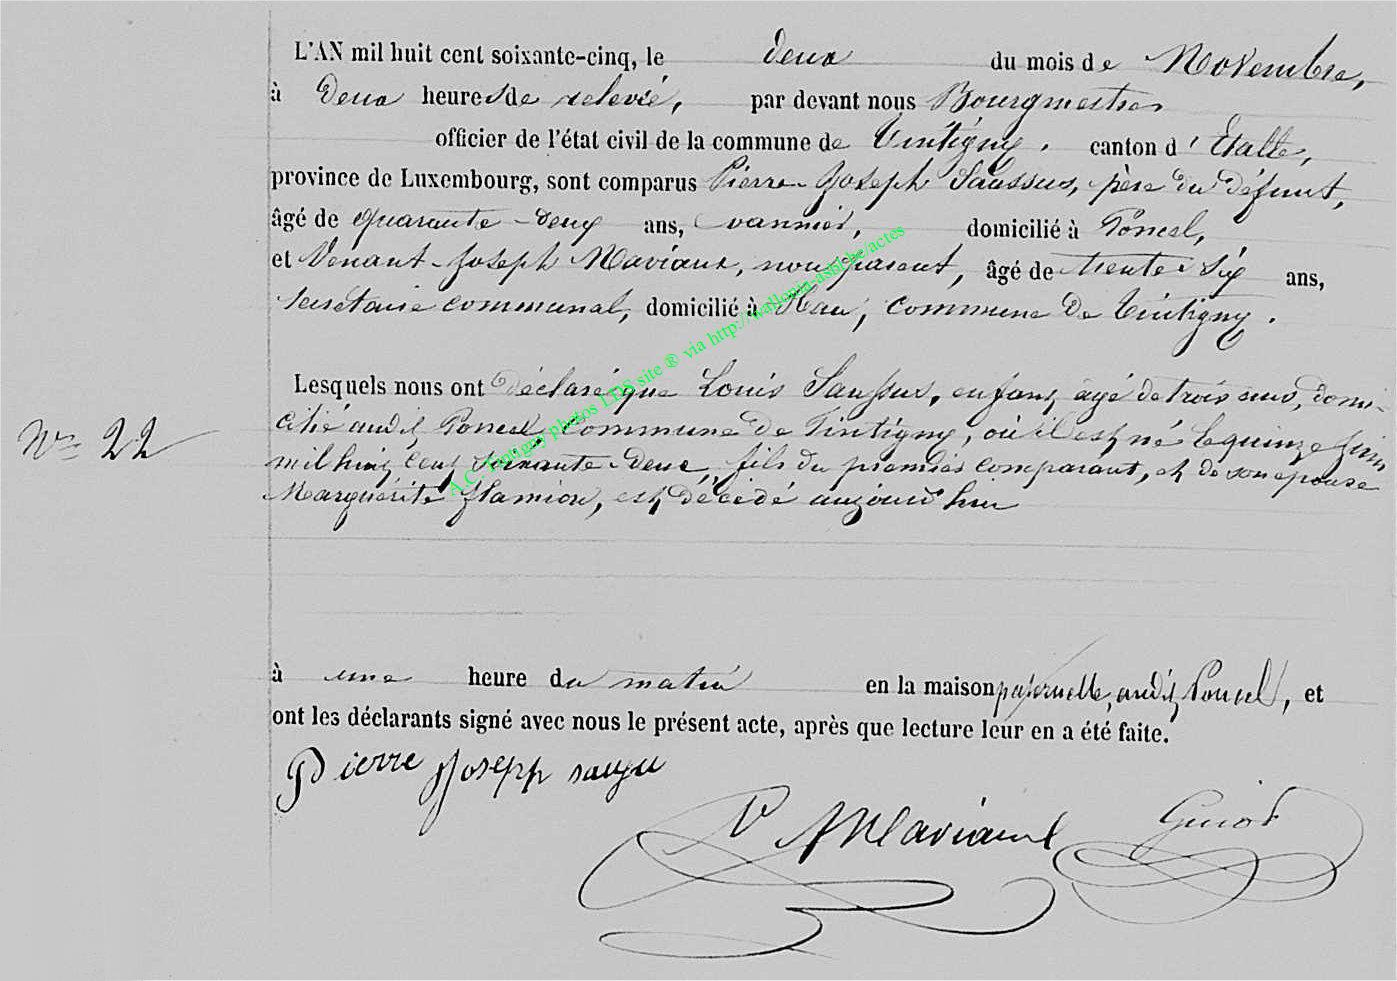 L'AN mil huit cent soixante-cinq, le deux du mois de Novembre,
à Deux heures de relevée, par devant nous Bourgmestre
officier de l'état civil de la commune de Tintigny, canton d'Etalle,
province de Luxembourg, sont comparus Pierre-Joseph Saussus, père du défunt,
âgé de quarante-deux ans, vannier, domicilié à Poncel,
et Venant-Joseph Maviaux, non parent, âgé de trente-six ans,
secrétaire communal, domicilié à Han, commune de Tintigny.
Lesquels nous ont déclaré que Louis Saussus, enfant, agé de trois ans, domi-
cilié audit Poncel, commune de Tintigny, où il est né le quinze Juin
N° 22
mil huit cent soixante-deux, fils du premier comparant, et de son épouse
Marguérite Flamion, est décédé aujourd'hui
à une heure du matin en la maison paternelle, audit Poncel, et
ont les déclarants signé avec nous le présent acte, après que lecture leur en a été faite.
Pierre Joseph
V J Maviaux Guiot
A.C. Tintigny photos LDS site ® via http://wallonia-asbl.be/actes